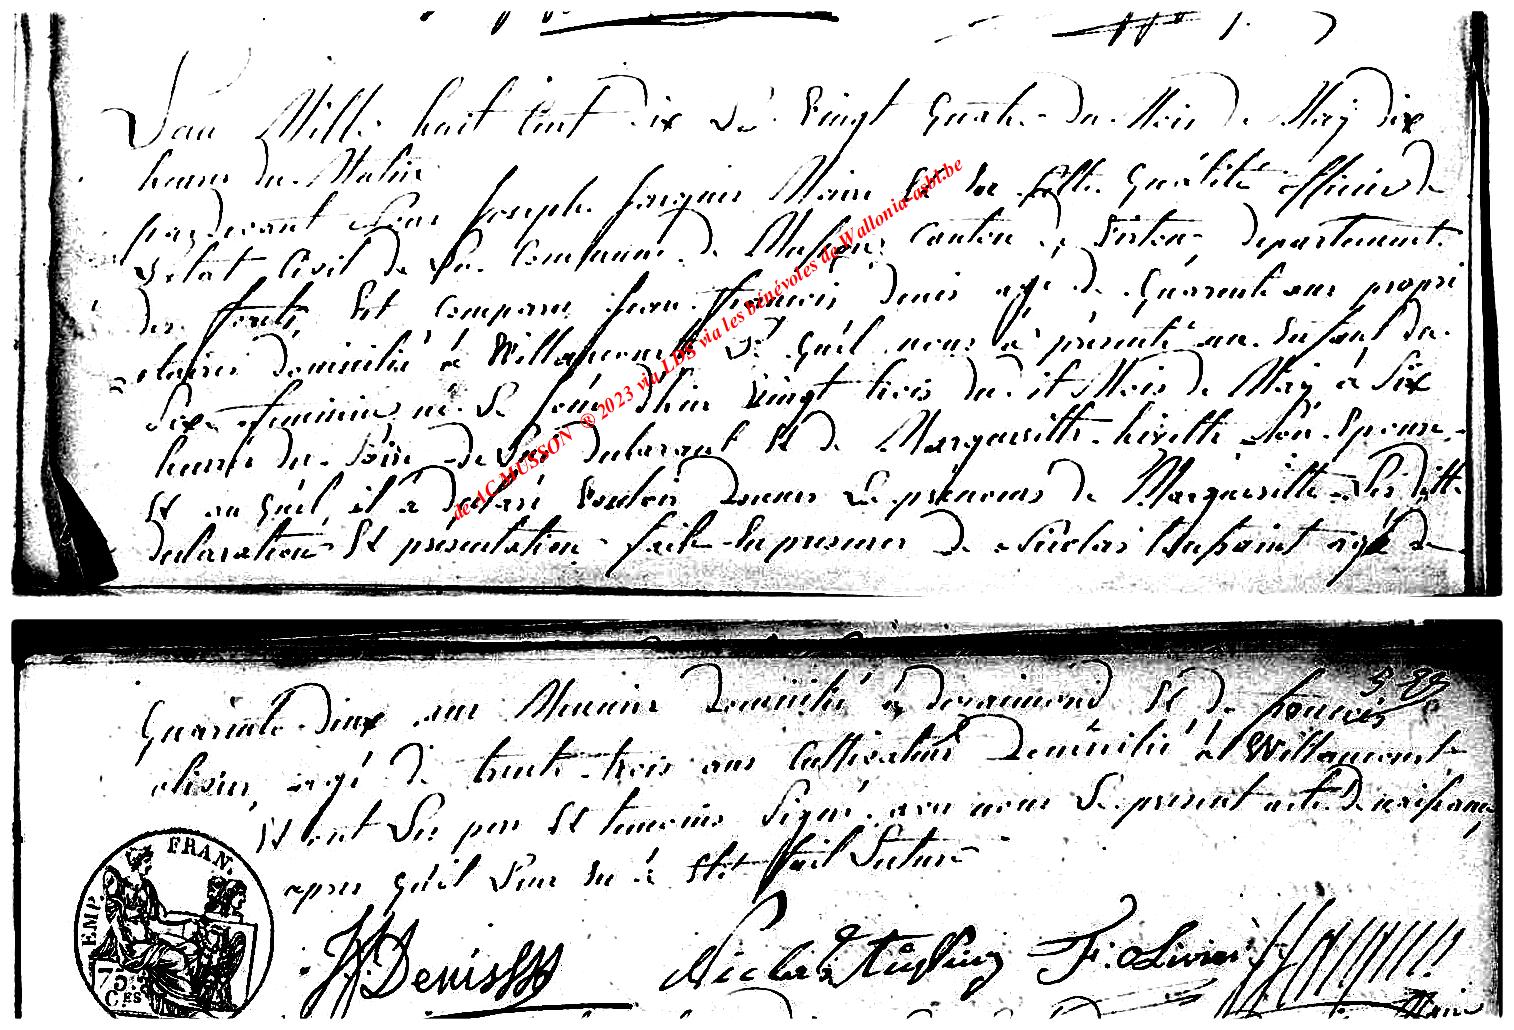 L'an Mille huit Cent Dix Le Vingt Quatre Du Mois De May dix
heures Du Matin
pardevant Nous Joseph Jacques Maire Et En Cette Qualité officier De
L'état Civil De La Commune De Musson Canton de Virton departement
des forêts Est Comparu Jean François Denis agé De Quarante ans propri
etaire Domicilié à Willancourt Lequel nous à présenté un Enfant Du
Sexe feminin né Le jour d'hier Vingt trois du dit Mois De May à Six
heures Du Soir De Lui Declarant Et De Margueritte Son Epouse
Et au quel il à déclaré Vouloir Donner Le prénoms De Margueritte Les dittes
declaration Et presentation faite En presence De Nicolas agé De
Quarante Deux ans Domicilié à Et De françois
olivier agé De trente trois ans Cultivateur Domicilié à Willancourt
Et ont Les pere Et temoins Signé avec nous Le present acte De naissance
apres qu'il Leur En à Eté fait Lecture
JF Denis Nicolas F: oLivier
Maire
EMP. FRAN.
75
Ces
de AC MUSSON ® 2023 via LDS via les bénévoles de Wallonia-asbl.be